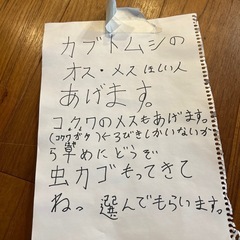 カブトムシの
オス・メスほしい人
あげます。
コクワのメスもあげます。
(コクワガタ)←3びきしかいないか
ら早めにどうぞ
虫カゴもってきて
ねっ。選んでもらいます。